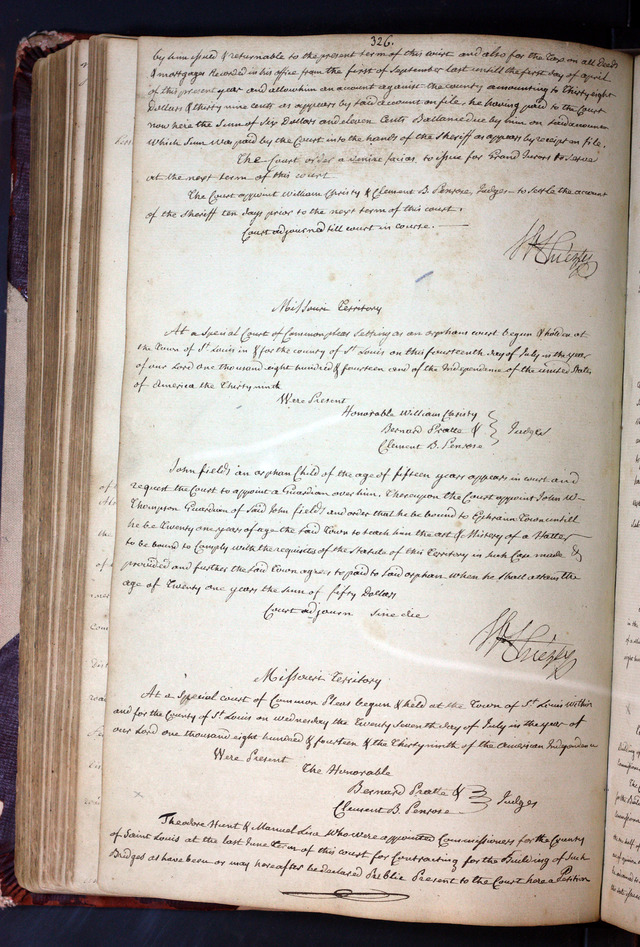 326.
by him issued & returnable to the present term of this court and also for the Tax on all Deeds
& mortgages Recorded in his office from the first of September last untill the first day of April
of this present year and allow him an account against the county amounting to Thirty eight
Dollars & thirty nine cents as appears by said account on file, he having paid to the Court
now here the Sum of Six Dollars and eleven Cents Ballance due by him on said account
Which Sum was paid by the Court into the hands of the Sheriff as appears by receipt on file.
The Court order a venire facias to issue for Grand Jurors to serve
at the next term of this court
The Court appoint William Christy & Clement B. Penrose, Judges to Settle the account
of the Sheriff ten days prior to the next term of this court.
Court adjourned till court in course.
Wm Christy
Missouri Territory
At a Special Court of Common pleas setting as an orphans court begun & holden at
the Town of St Louis in & for the county of St Louis on this fourteenth day of July in the year
of our Lord one thousand eight hundred & fourteen and of the Independence of the united States
of America the Thirty ninth
Were Present
Honorable William Christy
Bernard Pratte & Judges
Clement B. Penrose
John fields an orphan Child of the age of fifteen years appears in court and
request the Court to appoint a Guardian over him, Thereupon the Court appoint John W.
Thompson Guardian of Said John fields and order that he be bound to Ephraim Town untill
he be Twenty one years of age the Said Town to teach him the art & Mistery of a Hatter
to be bound to Comply with the requisites of the Statute of this Territory in such Case made &
provided and further the Said Town agrees to paid to Said orphan when he shall attain the
age of Twenty one years the Sum of fifty Dollars
Court adjourn Sine die
Wm Christy
Missouri Territory
At a Special court of Common Pleas begun & held at the Town of St Louis within
and for the County of St Louis on Wednesday the Twenty Seventh day of July in the year of
our Lord one thousand eight hundred & fourteen & the Thirty ninth of the American Independence
Were Present
The Honorable
Bernard Pratte & Judges
Clement B. Penrose
Theodore Hunt & Manuel Lisa who were appointed Commissioners for the County
of Saint Louis at the last June Term of this court for Contracting for the Building of Such
Bridges as have been or may hereafter be declared Public Present to the Court here a Petition